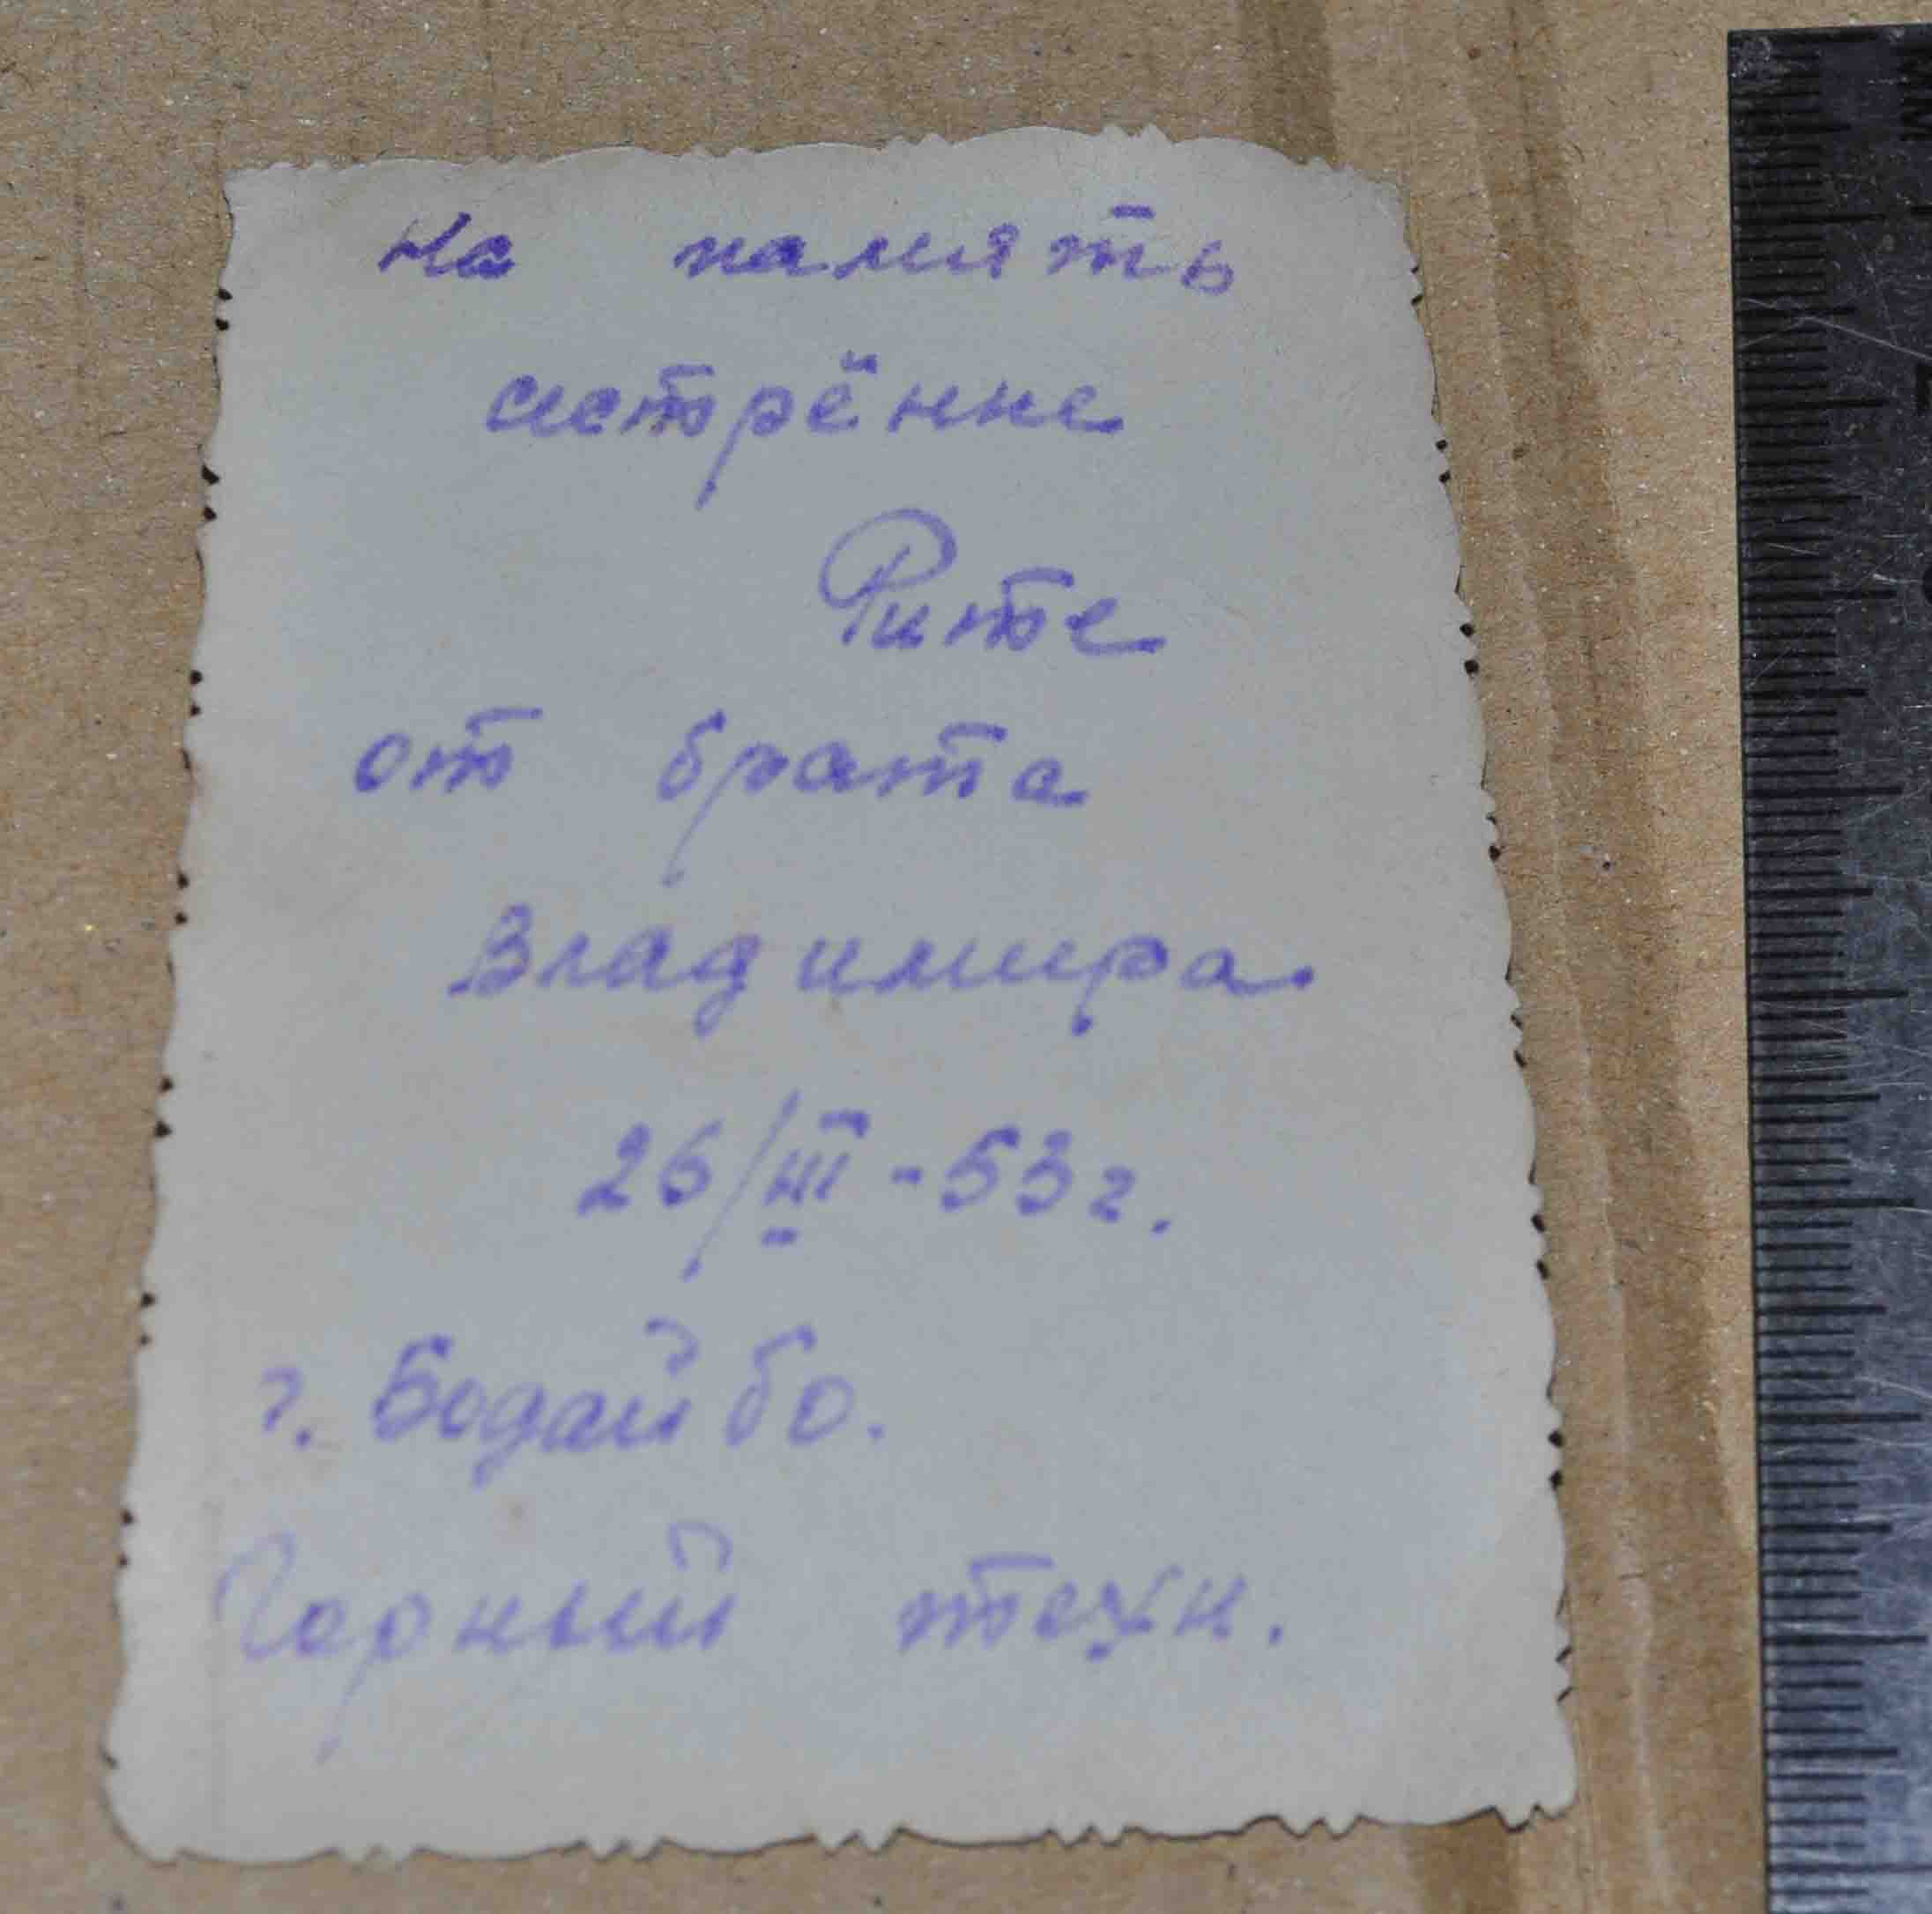 На память
сестрёнке
Рите
от брата
Владимира.
26/III - 53 г.
г. Бодайбо.
Горный техн.